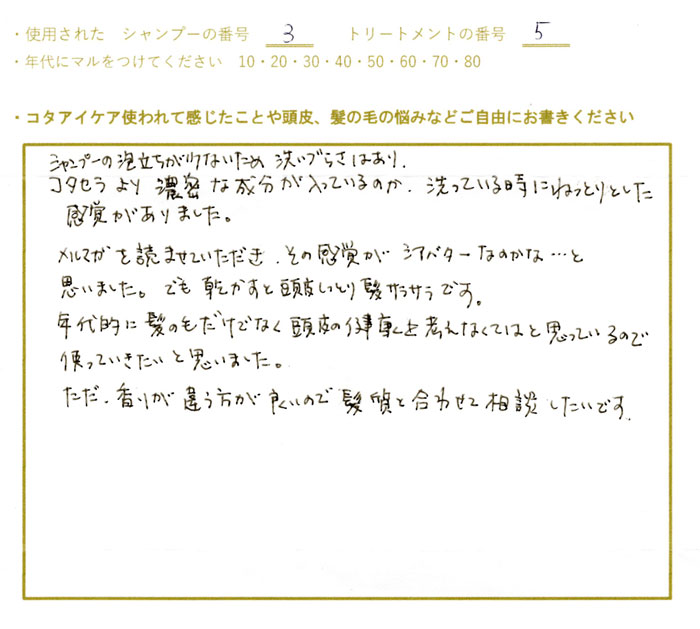 ・使用された　シャンプーの番号　3　　トリートメントの番号　5
・年代にマルをつけてください　10・20・30・40・50・60・70・80
・コタアイケア使われて感じたことや頭皮、髪の毛の悩みなどご自由にお書きください
シャンプーの泡立ちが少ないため 洗いづらさはあり、
コタセラより 濃密な成分が入っているのか、洗っている時にねっとりとした
感覚がありました。
メルマガを読ませていただき、その感覚が シアバターなのかな…と
思いました。でも 乾かすと頭皮しっとり 髪サラサラです。
年代的に髪の毛だけでなく 頭皮の健康を考えなくてはと思っているので
使っていきたいと思いました。
ただ、香りが違う方が良いので 髪質と合わせて相談したいです。